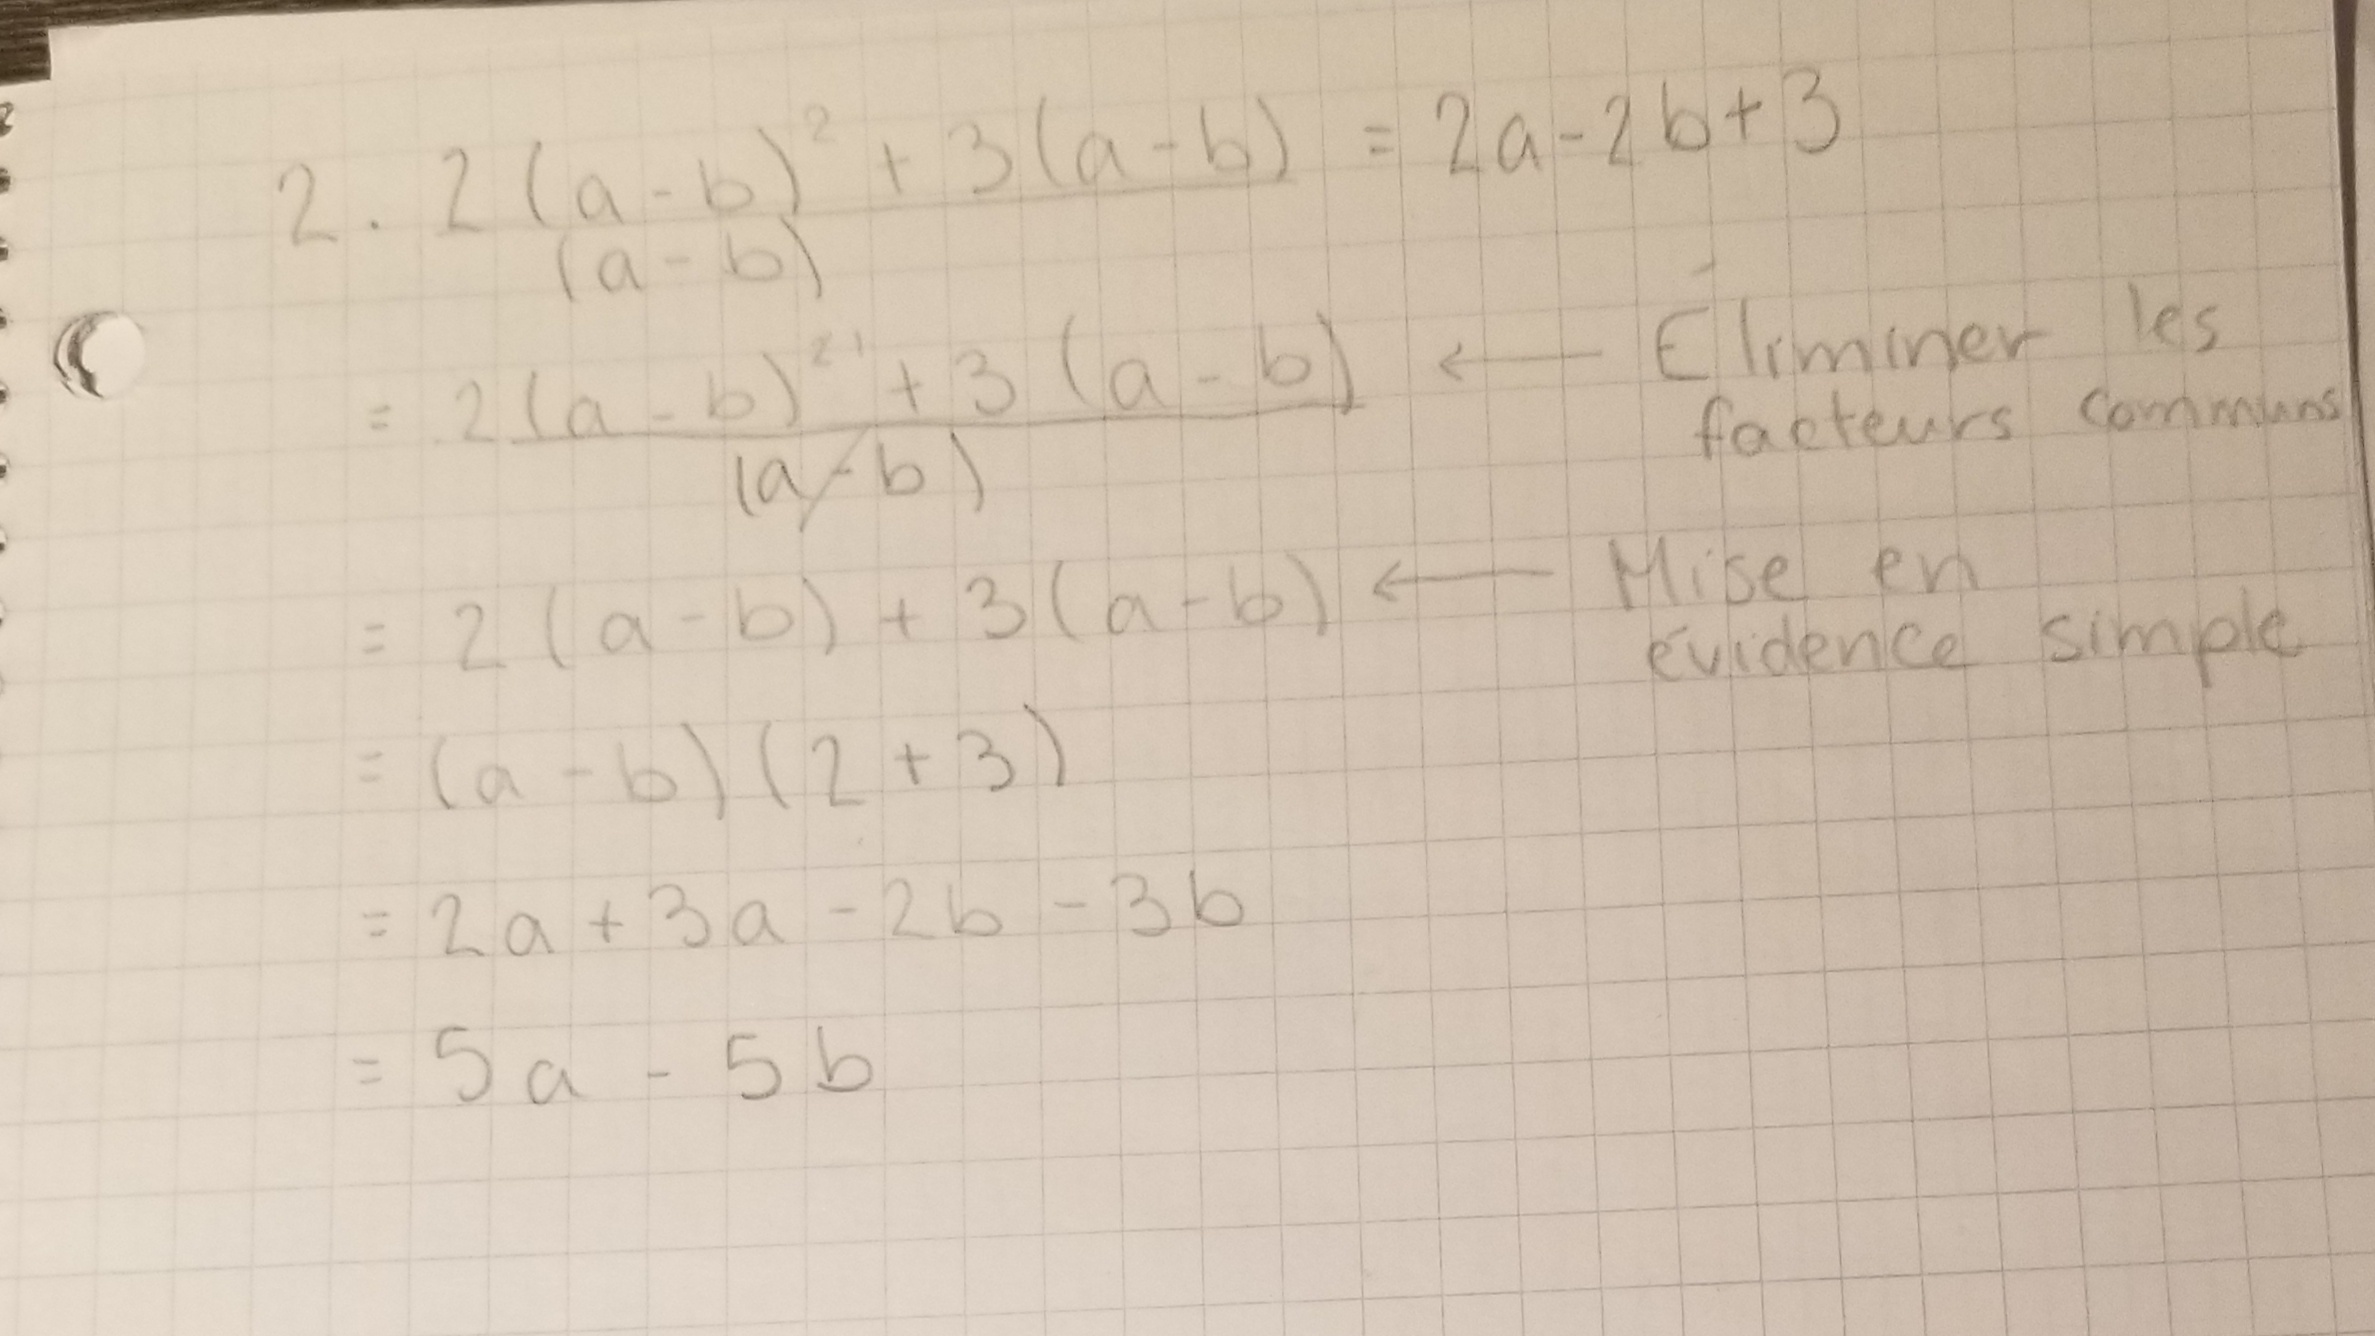 2. 2(a-b)² + 3(a-b) = 2a-2b+3
(a-b)
= 2(a-b)²¹ + 3(a-b) ← Éliminer les
facteurs communs
(a-b)
= 2(a-b) + 3(a-b) ← Mise en
évidence simple
= (a-b)(2+3)
= 2a + 3a - 2b - 3b
= 5a - 5b